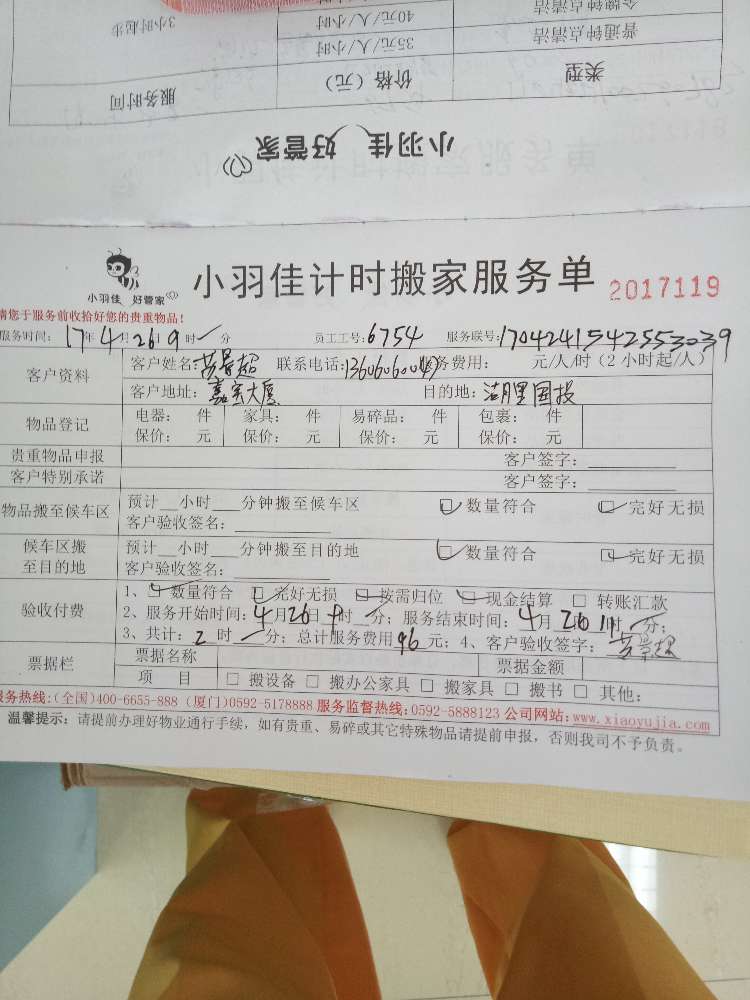 3小时起步
40元/人/小时
金牌钟点清洁
35元/人/小时
普通钟点清洁
服务时间
价格（元）
类型
小羽佳 好管家
小羽佳 好管家
小羽佳计时搬家服务单
2017119
请您于服务前收拾好您的贵重物品!
服务时间: 17年4月26日9时 分 员工工号:6754 服务联号:17042415425553039
客户资料
客户姓名: 景超 联系电话: 服务费用: 元/人/时（2小时起/人）
客户地址: 嘉宝大厦 目的地: 湖里国投
物品登记
电器: 件 家具: 件 易碎品: 件 包裹: 件
保价: 元 保价: 元 保价: 元 保价: 元
贵重物品申报 客户签字:
客户特别承诺 客户签字:
物品搬至候车区
预计__小时___分钟搬至候车区 数量符合 完好无损
客户验收签名:
候车区搬
至目的地
预计__小时___分钟搬至目的地 数量符合 完好无损
客户验收签名:
验收付费
1、 数量符合 完好无损 按需归位 现金结算 □ 转账汇款
2、服务开始时间: 4月26日9时 分; 服务结束时间: 4月26日11时 分;
3、共计: 2时 分; 总计服务费用96元; 4、客户验收签字: 景超
票据栏
票据名称 票据金额
项 目 □ 搬设备 □ 搬办公家具 □ 搬家具 □ 搬书 □ 其他:
服务热线:(全国)400-6655-888 (厦门)0592-5178888 服务监督热线:0592-5888123 公司网站:www.xiaoyujia.com
温馨提示: 请提前办理好物业通行手续，如有贵重、易碎或其它特殊物品请提前申报，否则我司不予负责。